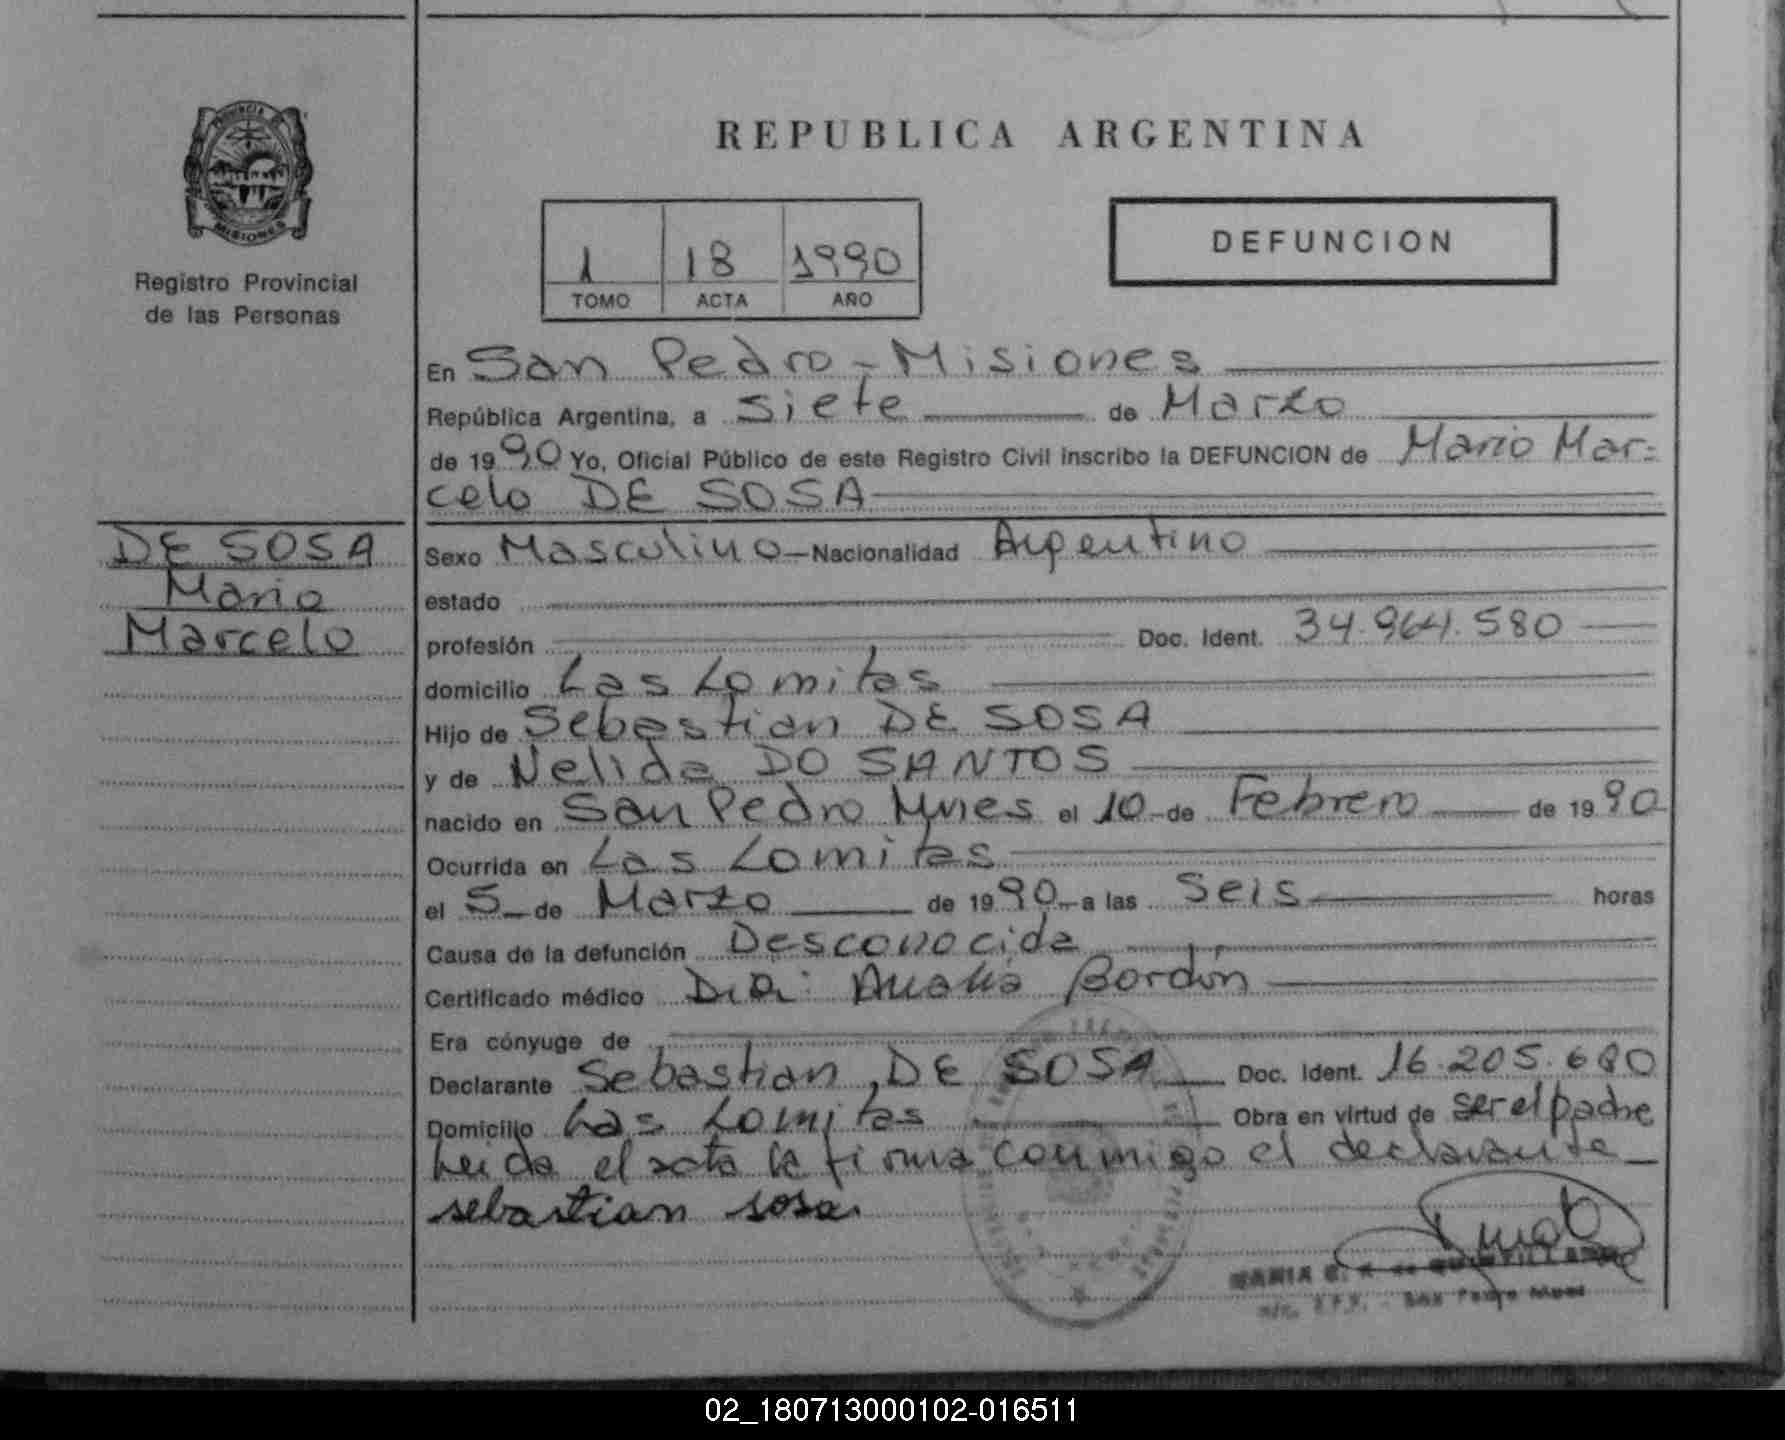 REPUBLICA ARGENTINA
PROVINCIA DE
MISIONES
Registro Provincial
de las Personas
1 18 1990
TOMO ACTA AÑO
DEFUNCION
En San Pedro - Misiones
República Argentina, a siete de Marzo
de 1990 Yo, Oficial Público de este Registro Civil inscribo la DEFUNCION de Mario Mar=
celo DE SOSA
DE SOSA
Mario
Marcelo
Sexo Masculino - Nacionalidad Argentino
estado
profesión Doc. Ident. 34.964.580
domicilio Las Lomitas
Hijo de Sebastian DE SOSA
y de Nelida DO SANTOS
nacido en San Pedro Mnes el 10 - de Febrero de 1990
Ocurrida en Las Lomitas
el 5 - de Marzo de 1990 - a las Seis horas
Causa de la defunción Desconocida
Certificado médico Dra: Analia Bordón
Era cónyuge de
Declarante Sebastian DE SOSA Doc. Ident. 16.205.680
Domicilio Las Lomitas Obra en virtud de ser el padre
Leida el acta la firma conmigo el declarante
sebastian sosa.
MARIA
San Pedro
02_180713000102-016511